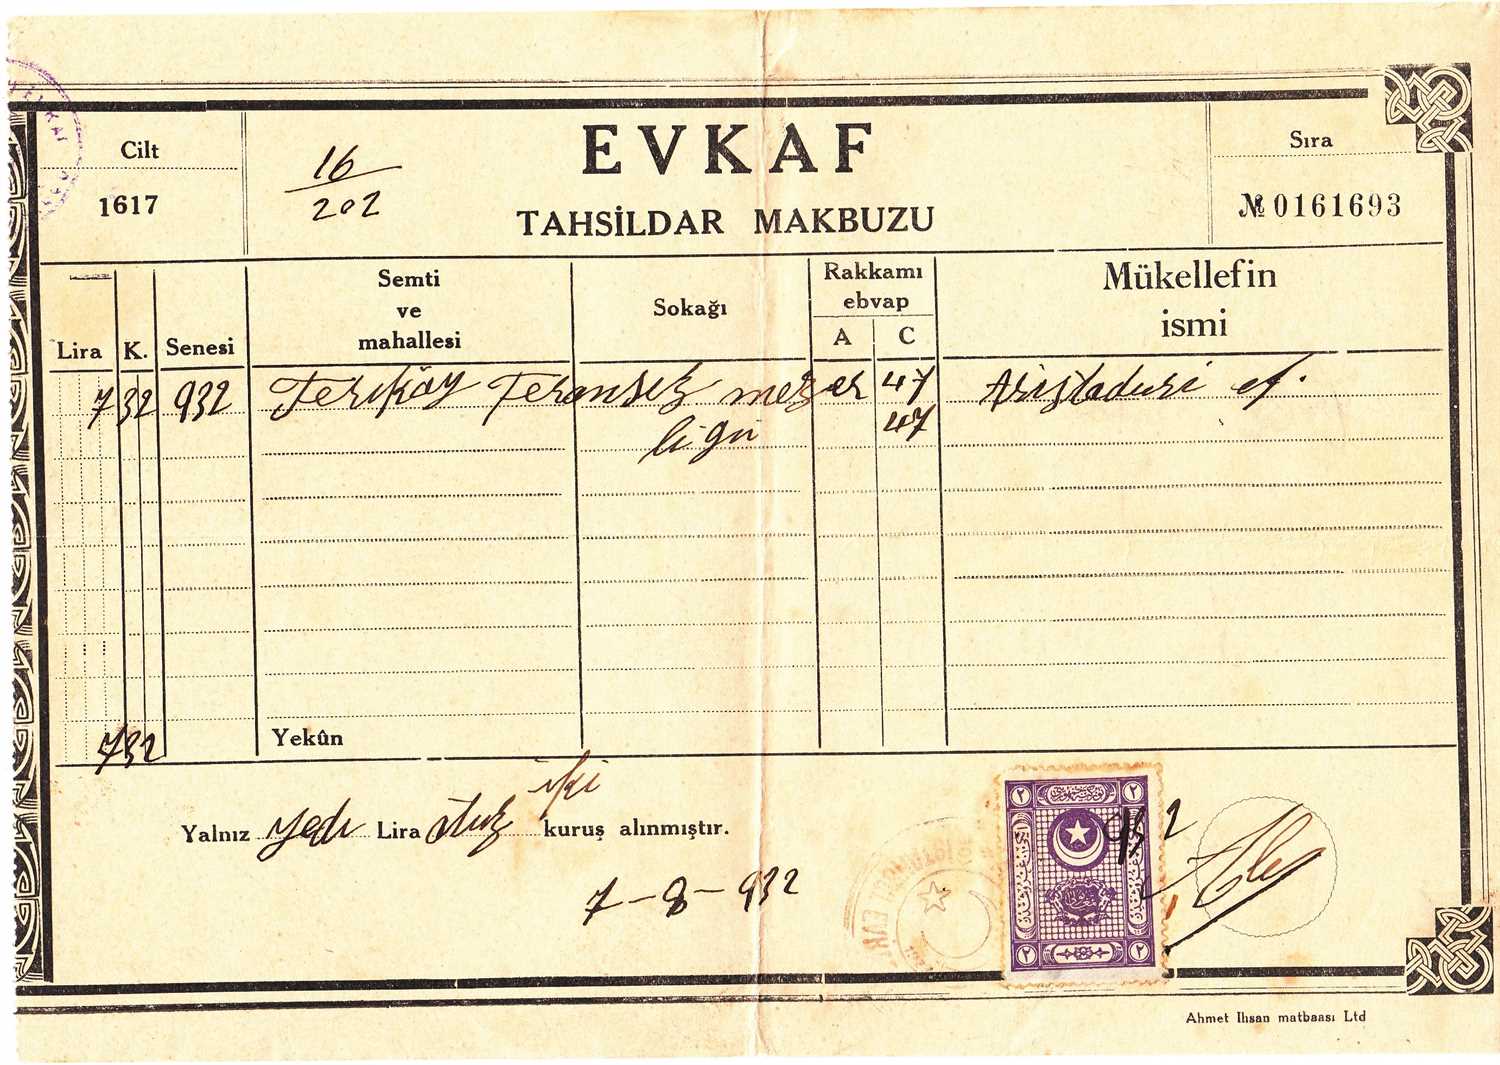 Cilt
1617
16
202
EVKAF
TAHSİLDAR MAKBUZU
Sıra
№ 0161693
Lira K. Senesi
Semti
ve
mahallesi
Sokağı
Rakkamı
ebvap
A C
Mükellefin
ismi
7 32 932 Feriköy Feransız mezer 47 Aristaduri ef.
liğı 47
732 Yekûn
iki
Yalnız yedi Lira otuz kuruş alınmıştır.
7-8-932
932
٢ ٢
٢ ٢
Ahmet Ihsan matbaası Ltd